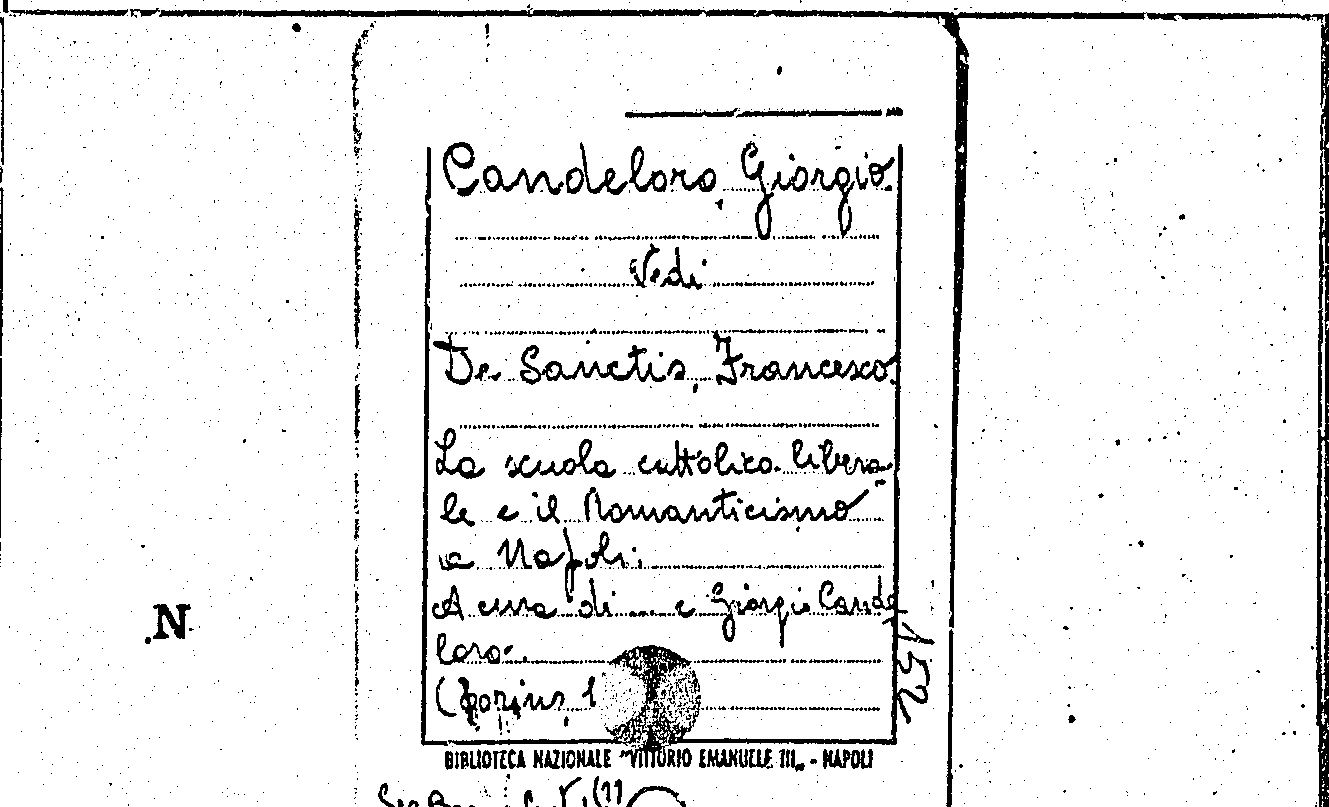 Candeloro, Giorgio.
Vedi
De Sanctis, Francesco.
La scuola cattolico-libera-
le e il Romanticismo
a Napoli.
A cura di ... e Giorgio Cande
loro.
152
N
BIBLIOTECA NAZIONALE "VITTORIO EMANUELE III„ - NAPOLI